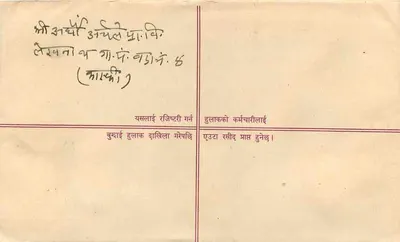 श्री सर्यो अर्यले प्रा. वि.
लेखनाथ गा. पं. वडा नं. ४
(कास्की)
यसलाई रजिष्टरी गर्न हुलाकको कर्मचारीलाई
बुझाई हुलाक दाखिला गरेपछि एउटा रसीद प्राप्त हुनेछ।